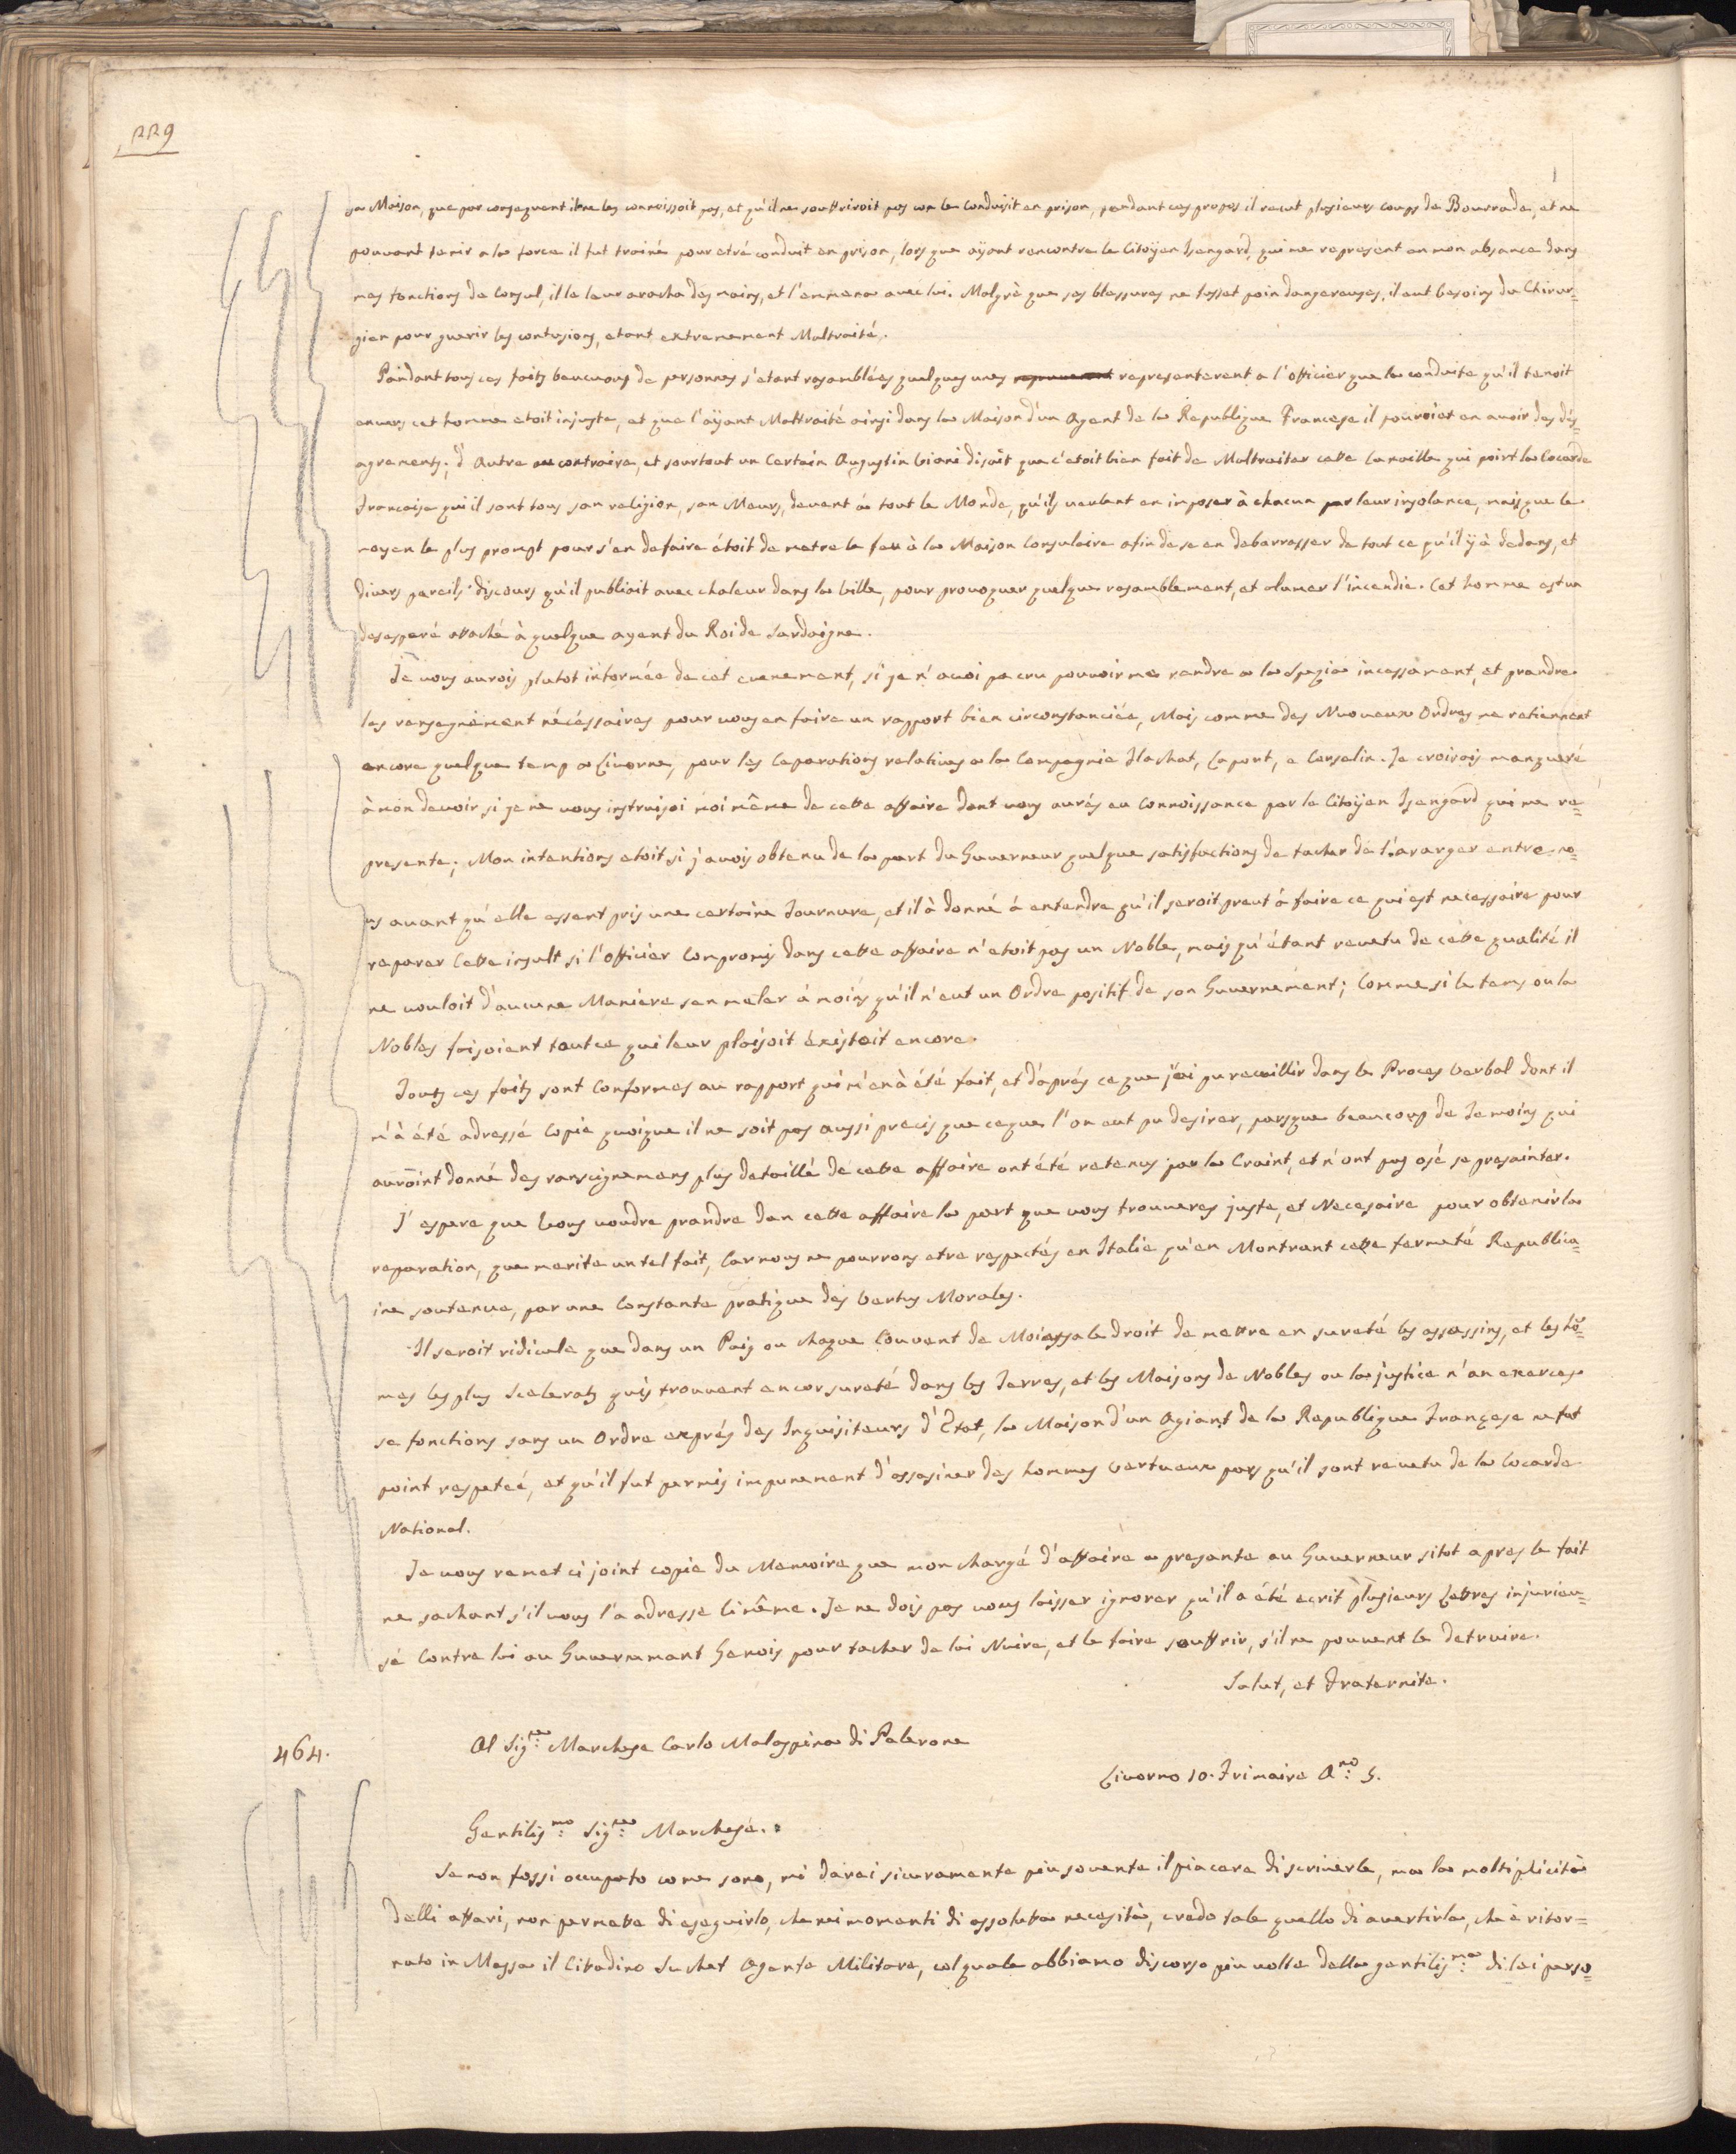 229
sa Maison, que par consequent il ne les connoissoit pas, et qu'il ne souffriroit pas con le Conduisit en prison, pendant ces propos il recut plusieurs coups de Bourrade, et ne
pouvant tenir a la force il fut trainé pour etré conduit en prison, lors que aÿant rencontre le Citoÿen Isengard, qui me represent en mon absance dans
mes fonctions de Consul, il le leur aracha des mains, et l'emmena avec lui. Malgrè que ses blessures ne fusset poin dangereuses, il eut besoins du Chirur=
gien pour guerir les contusions, etant extremement Maltraité.
Pandant tous ces faits beaucoup de personnes s'etant rasamblées quelques unes representerent a l'officier que la conduite qu'il tenoit
envers cet homme etoit injuste, et que l'aÿant Maltraité ainsi dans la Maison d'un Agent de la Republique Francese il pourroiet en avoir des dés=
agrements; d'Autre au contraire, et sourtout un Certain Augustin Viani disoit que c'etoit bien fait de Maltraiter cette Canaille qui poirt la Cocarde
Francaise qui il sont tous san religion, san Meurs, devent a tout le Monde, qu'ils veulent en imposer à chacun par leur insolance, mais que le
moyen le plus prompt pour s'en defaire étoit de metre le feu à la Maison Consulaire afin de se en debarrasser de tout ce qu'il ÿ à dedans, et
divers pareils discours qu'il publioit avec chaleur dans la Ville, pour provoquer quelque rasamblement, et alumer l'incendie. Cet homme est un
desesperé attaché à quelque agent du Roi de Sardaigne.
Je vous aurois plutot informée de cet evenement, si je n'avoi pa cru pouvoir me rendre a la Spezia incessament, et prandre
les rensegnèment nécéssaires pour vous en faire un rapport bien circonstanciée, Mais comme des Nuoveaux Ordres me retiennent
encore quelque temp a Livorne, pour les Caparations relatives a la Compagnie Flachat, Laport, e Castelin. Je croirois manqueré
à mon devoir si je ne vous instruisoi moi même de cette affaire dont vous aurés eu Connoissance par le Citoÿen Isengard qui me re=
presente; Mon intentions etoit si j'avois obtenu de la part du Guverneur quelque satisfactions de tacher de l'ararger entre no=
us avant qu'elle essent pris une certaine Tournure, et il à donné á entendre qu'il seroit preut á faire ce qui est necessaire pour
reparer Cette insult si l'Officier Compromis dans cette affaire n'etoit pas un Noble, mais qu'étant revetu de cette qualité il
ne vouloit d'aucune Maniere sen meler á moins qu'il n'eut un Ordre positif de son Guvernément; Comme si le tems ou la
Nobles faisoient tout ce qui leur plaisoit éxistoit encore.
Touts ces faits sont Conformes au rapport qui m'en à été fait, et d'aprés ce que j'ai pu recuillir dans le Proces Verbal dont il
m'à été adressé Copie quoique il ne soit pas aussi precis que ce que l'on eut pu desirer, parsque beaucoup de Temoins qui
auroint donné des ranseignemens plus detaillé de cette affaire ont été retenus par la Craint, et n'ont pas osé se presainter.
J'espere que Vous voudre prandre dan cette affaire la part que vous trouveres juste, et Necesaire pour obtenir la
reparation, que merite un tel fait, Car nous ne pourrons etre respectés en Italie qu'en Montrant cette fermeté Republica=
ine soutenue, par une Constante pratique des Vertus Morales.
Il seroit ridicule que dans un Pais ou chaque Couvent de Moies a le droit de mettre en sureté les assassins, et les hõ=
mes les plus Scelerats quis trouvent encor sureté dans les Terres, et les Maisons de Nobles ou la justice n'an exerces
se fonctions sans un Ordre exprés des Inquisiteurs d'Etat, la Maison d'un Agiant de la Republique Françese ne fut
point respeteé, et qu'il fut permis impunement d'assasiner des hommes Vertueux pars qu'il sont revetu de la Cocarde
National.
Je vous remet ci joint copie du Memoire que mon chargé d'affaire a presante au Guverneur sitot apres le fait
ne sachant s'il vous l'a adresse li même. Je ne dois pas vous laisser ignorer qu'il a été ecrit plusieurs Lettres injurieu=
sé Contre lui au Guvernamant Genois pour tacher de lui Nuire, et le faire souffrir, s'il ne pouvent le detruire.
Salut, et Fraternite.
464.
Al Sig.re Marchese Carlo Malaspina di Palerone
Livorno 10. Frimaire A.no 5.
Gentilis.mo Sig.re Marchese.
Se non fossi occupato come sono, mi darei sicuramente piu sovente il piacere di scriverle, ma la moltiplicità
delli affari, non permette di eseguirlo, che nei momenti di assoluta necesità, credo tale quello di avertirla, che è ritor=
nato in Massa il Citadino Suchet Agente Militare, col quale abbiamo discorso piu volte della gentilis.ma di lei perso=